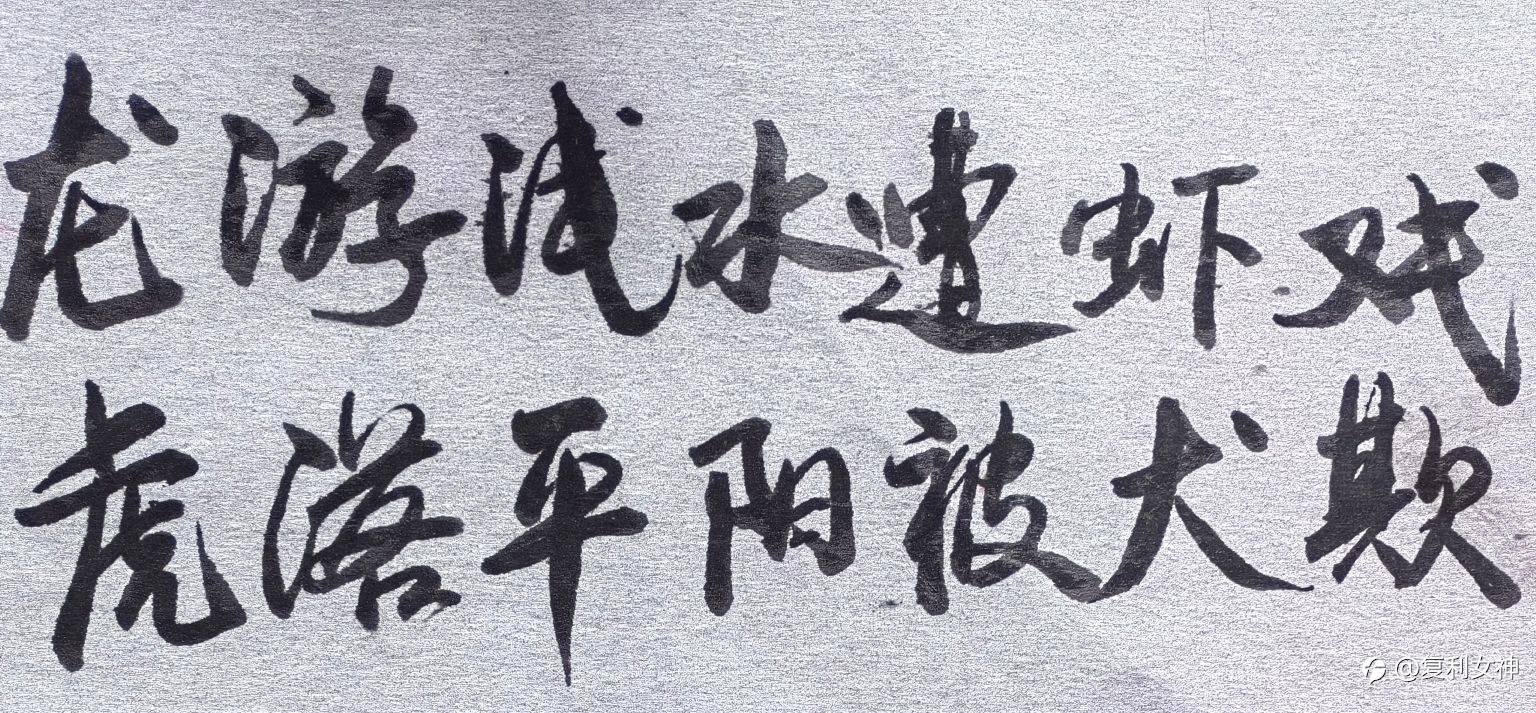 龙游浅水遭虾戏
虎落平阳被犬欺
@复利女神